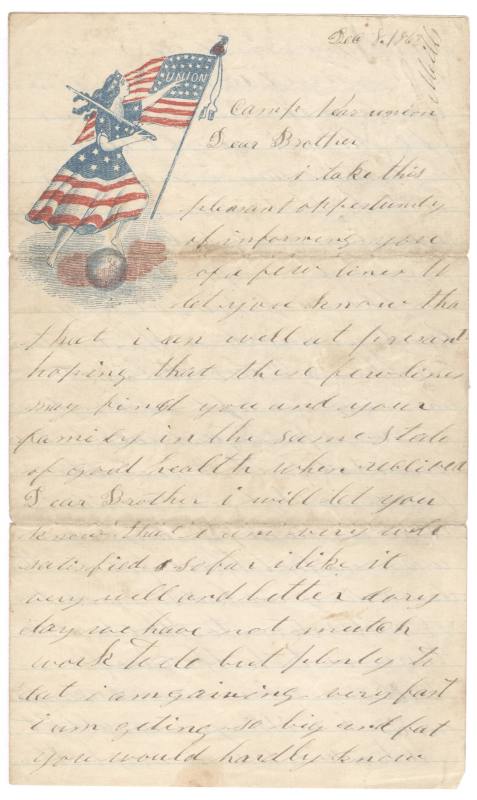 Dec 8. 186
UNION
Camp Near union
Dear Brother
i take this
pleasant oppertunidy
of informing you
of a few lines to
let you know tha
that i am well at present
hoping that these few lines
may find you and your
family in the same State
of good health when reblived
Dear Brother i will let you
know that i am very well
satisfied sofar i like it
very well and better dary
day we have not mutch
work to do but plenty to
eat i am gaining very fast
i am geting so big and fat
you would hardly know